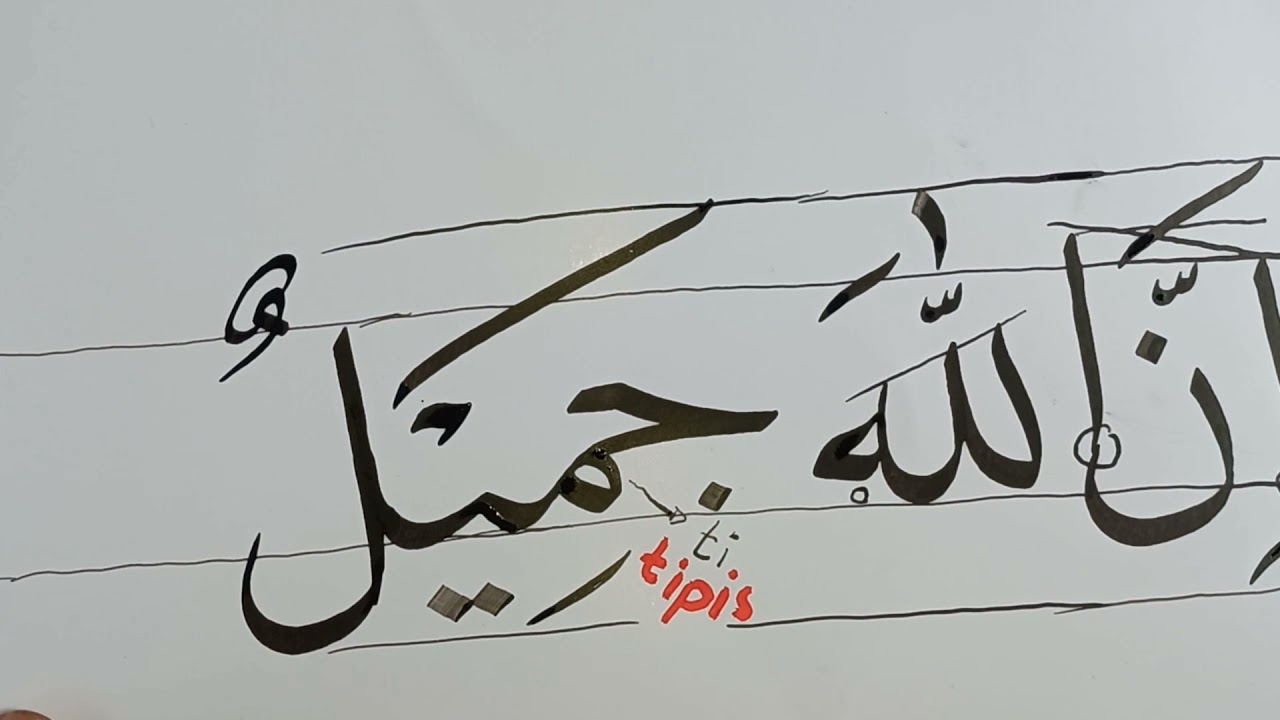 إِنَّ اللّٰهَ جَمِيلٌ
ti
tipis